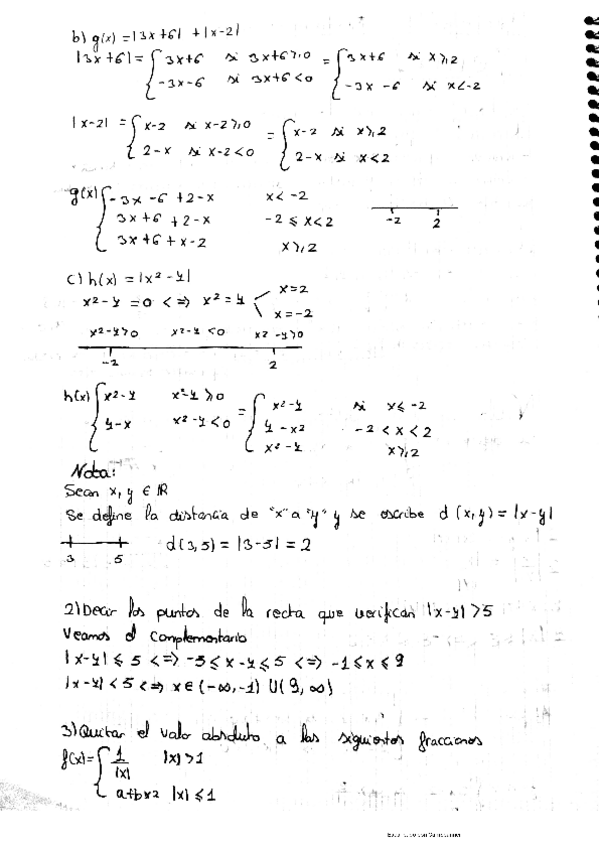 b) g(x) = |3x+6| + |x-2|
|3x+6| = { 3x+6 si 3x+6⩾0 = { 3x+6 si x⩾2
-3x-6 si 3x+6<0 -3x-6 si x<-2
|x-2| = { x-2 si x-2⩾0 = { x-2 si x⩾2
2-x si x-2<0 2-x si x<2
g(x) { -3x-6+2-x x<-2
3x+6+2-x -2⩽x<2
3x+6+x-2 x⩾2
-2 2
c) h(x) = |x²-4|
x²-4=0 <=> x²=4 x=2
x=-2
x²-4>0 x²-4<0 x²-4>0
-2 2
h(x) { x²-4 x²-4⩾0 = { x²-4 si x⩽-2
4-x x²-4<0 4-x² -2<x<2
x²-4 x⩾2
Nota:
Sean x, y ∈ ℝ
Se define la distancia de "x" a "y" y se escribe d(x,y) = |x-y|
3 5 d(3,5) = |3-5| = 2
2) Decir los puntos de la recta que verifican |x-4|>5
Veamos el complementario
|x-4|⩽5 <=> -5⩽x-4⩽5 <=> -1⩽x⩽9
|x-4|<5 <=> x∈(-∞,-1) U (9,∞)
3) Quitar el valor absoluto a las siguientes fracciones
f(x) = { 1/|x| |x|>1
a+bx² |x|⩽1